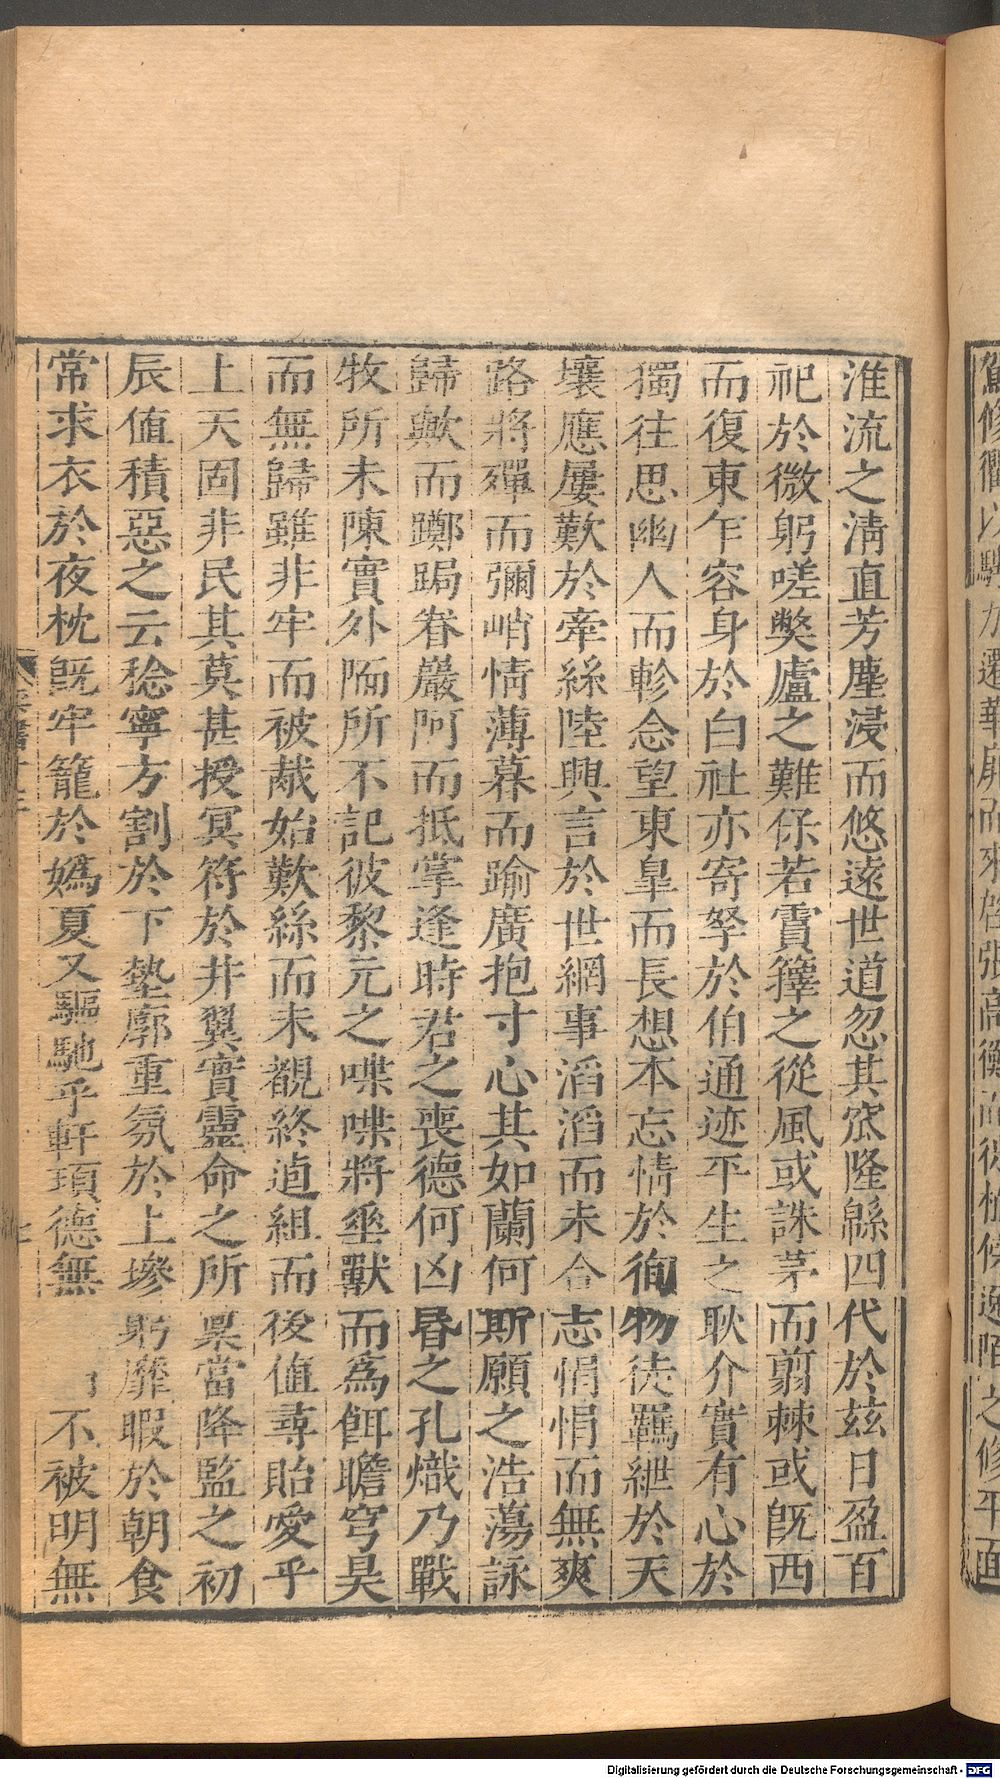 淮流之清直芳塵浸而悠遠世道忽其窊隆緜四代於茲日盈百
祀於微躬嗟弊廬之難保若霣籜之從風或誅茅而翦棘或旣西
而復東乍容身於白社亦寄孥於伯通迹平生之耿介實有心於
獨往思幽人而軫念望東臯而長想本忘情於徇物徒羈紲於天
壤應屢歎於牽絲陸興言於世網事滔滔而未合志悁悁而無爽
路將殫而彌峭情薄暮而踰廣抱寸心其如蘭何斯願之浩蕩詠
歸歟而躑跼眷巖阿而抵掌逢時君之喪德何凶昬之孔熾乃戰
牧所未陳實外陑所不記彼黎元之喋喋將垂獸而爲餌瞻穹昊
而無歸雖非牢而被胾始歎絲而未覩終逌組而後值尋貽愛乎
上天固非民其莫甚授冥符於井翼實靈命之所稟當降監之初
辰值積惡之云稔寧方割於下墊廓重氛於上墋躬靡暇於朝食
常求衣於夜枕旣牢籠於嬀夏又驅馳乎軒頊德無不被明無
駕修衢以騁力遷華扉而來啓張高衡而徙植傍逾陌之修平面
Digitalisierung gefördert durch die Deutsche Forschungsgemeinschaft - DFG